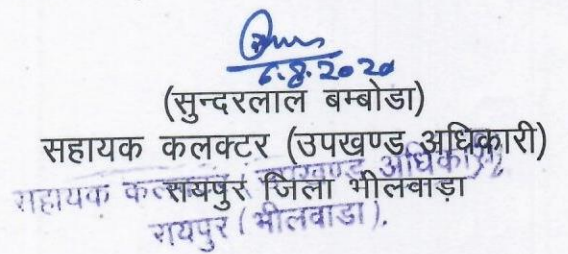 6.8.2020
(सुन्दरलाल बम्बोडा)
सहायक कलक्टर (उपखण्ड अधिकारी)
रायपुर जिला भीलवाड़ा
सहायक कलक्टर उपखण्ड अधिकारी
रायपुर (भीलवाडा).